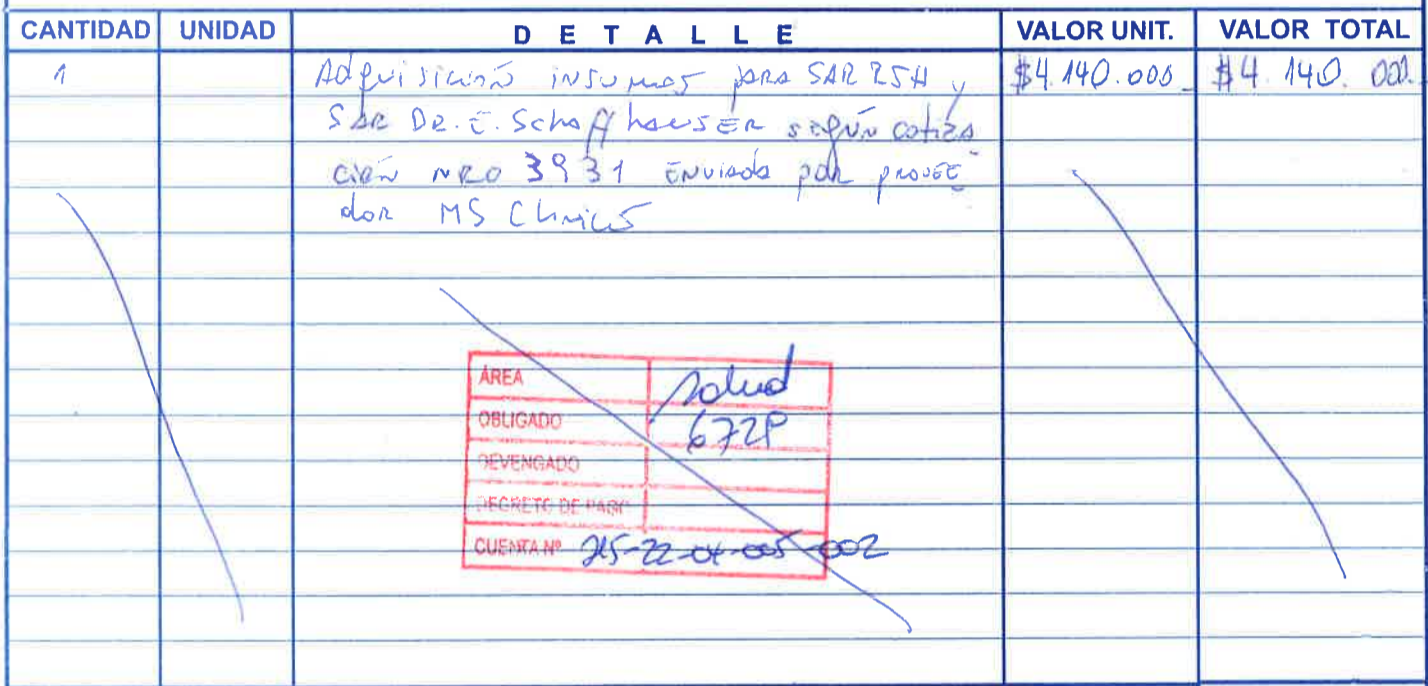 CANTIDAD UNIDAD DETALLE VALOR UNIT. VALOR TOTAL
1 Adquisición insumos para SAR RSH y $4.140.000 $4.140.000.
SAR DR. E. Schaffhauser según cotiza
ción NRO 3931 Enviada por provee
dor MS Clinics
ÁREA Salud
OBLIGADO 672P
DEVENGADO
DECRETO DE PAGO
CUENTA Nº 215-22-04-005-002